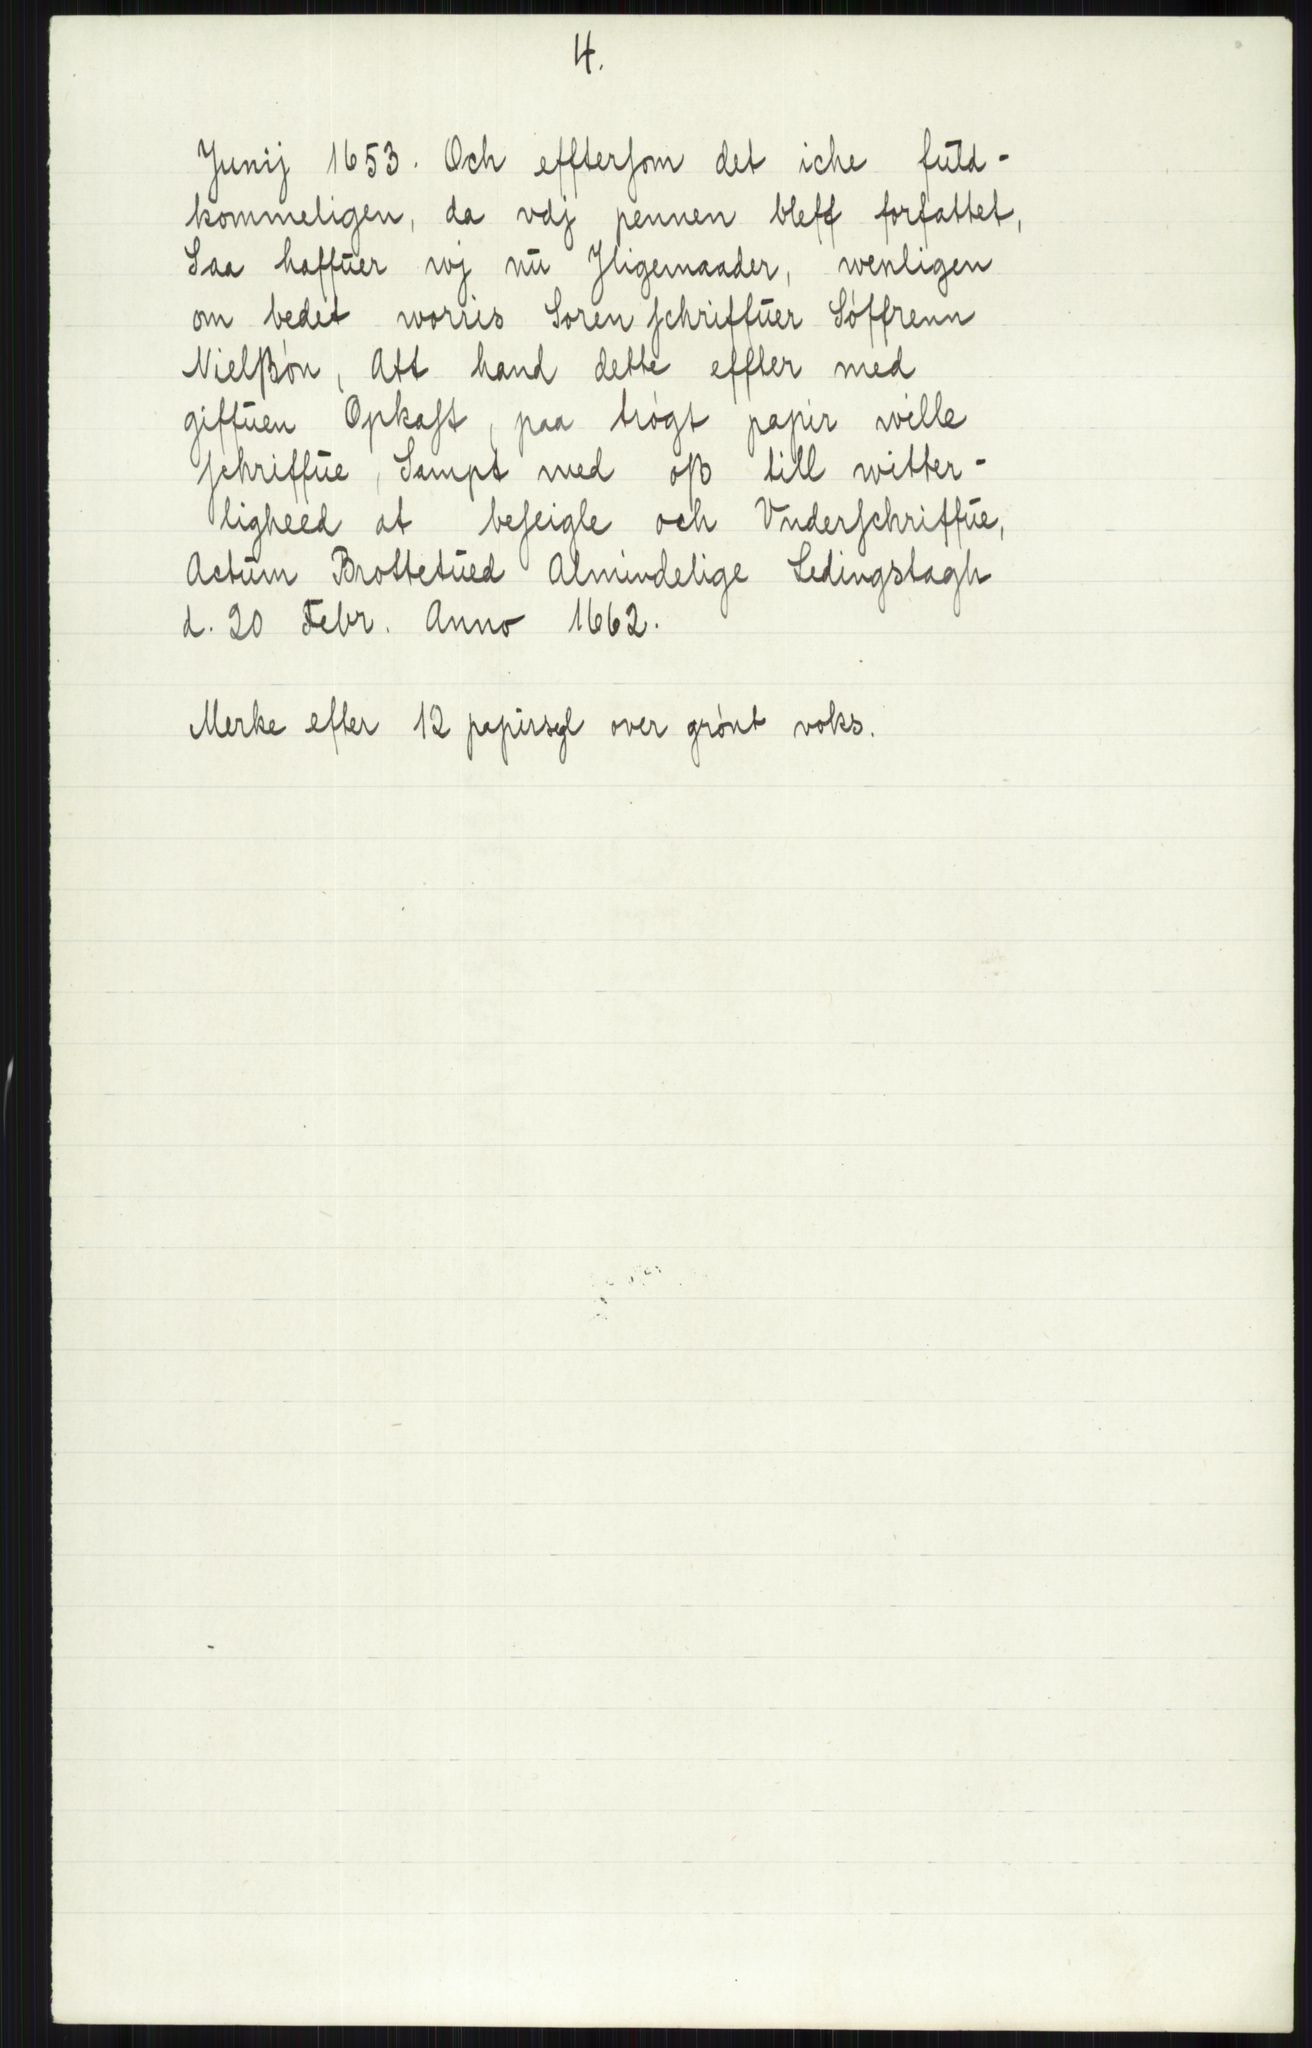 4.
Junij 1653. Och efftersom det iche fuld-
kommeligen, da vdj pennen bleff forfattet,
Saa haffuer wj nu Jligemaader, wenligen
om bedet worris Soren schriffuer Söffrenn
Nielßön, Att hand dette effter med
giffuen Opkast, paa trögt papir wille
schriffue, Sampt med oß till witter-
ligheed at beseigle och Vnderschriffue,
Actum Brottetued Almindelige Ledingstagh
d. 20 Febr. Anno 1662.
Merke efter 12 papirsegl over grønt voks.